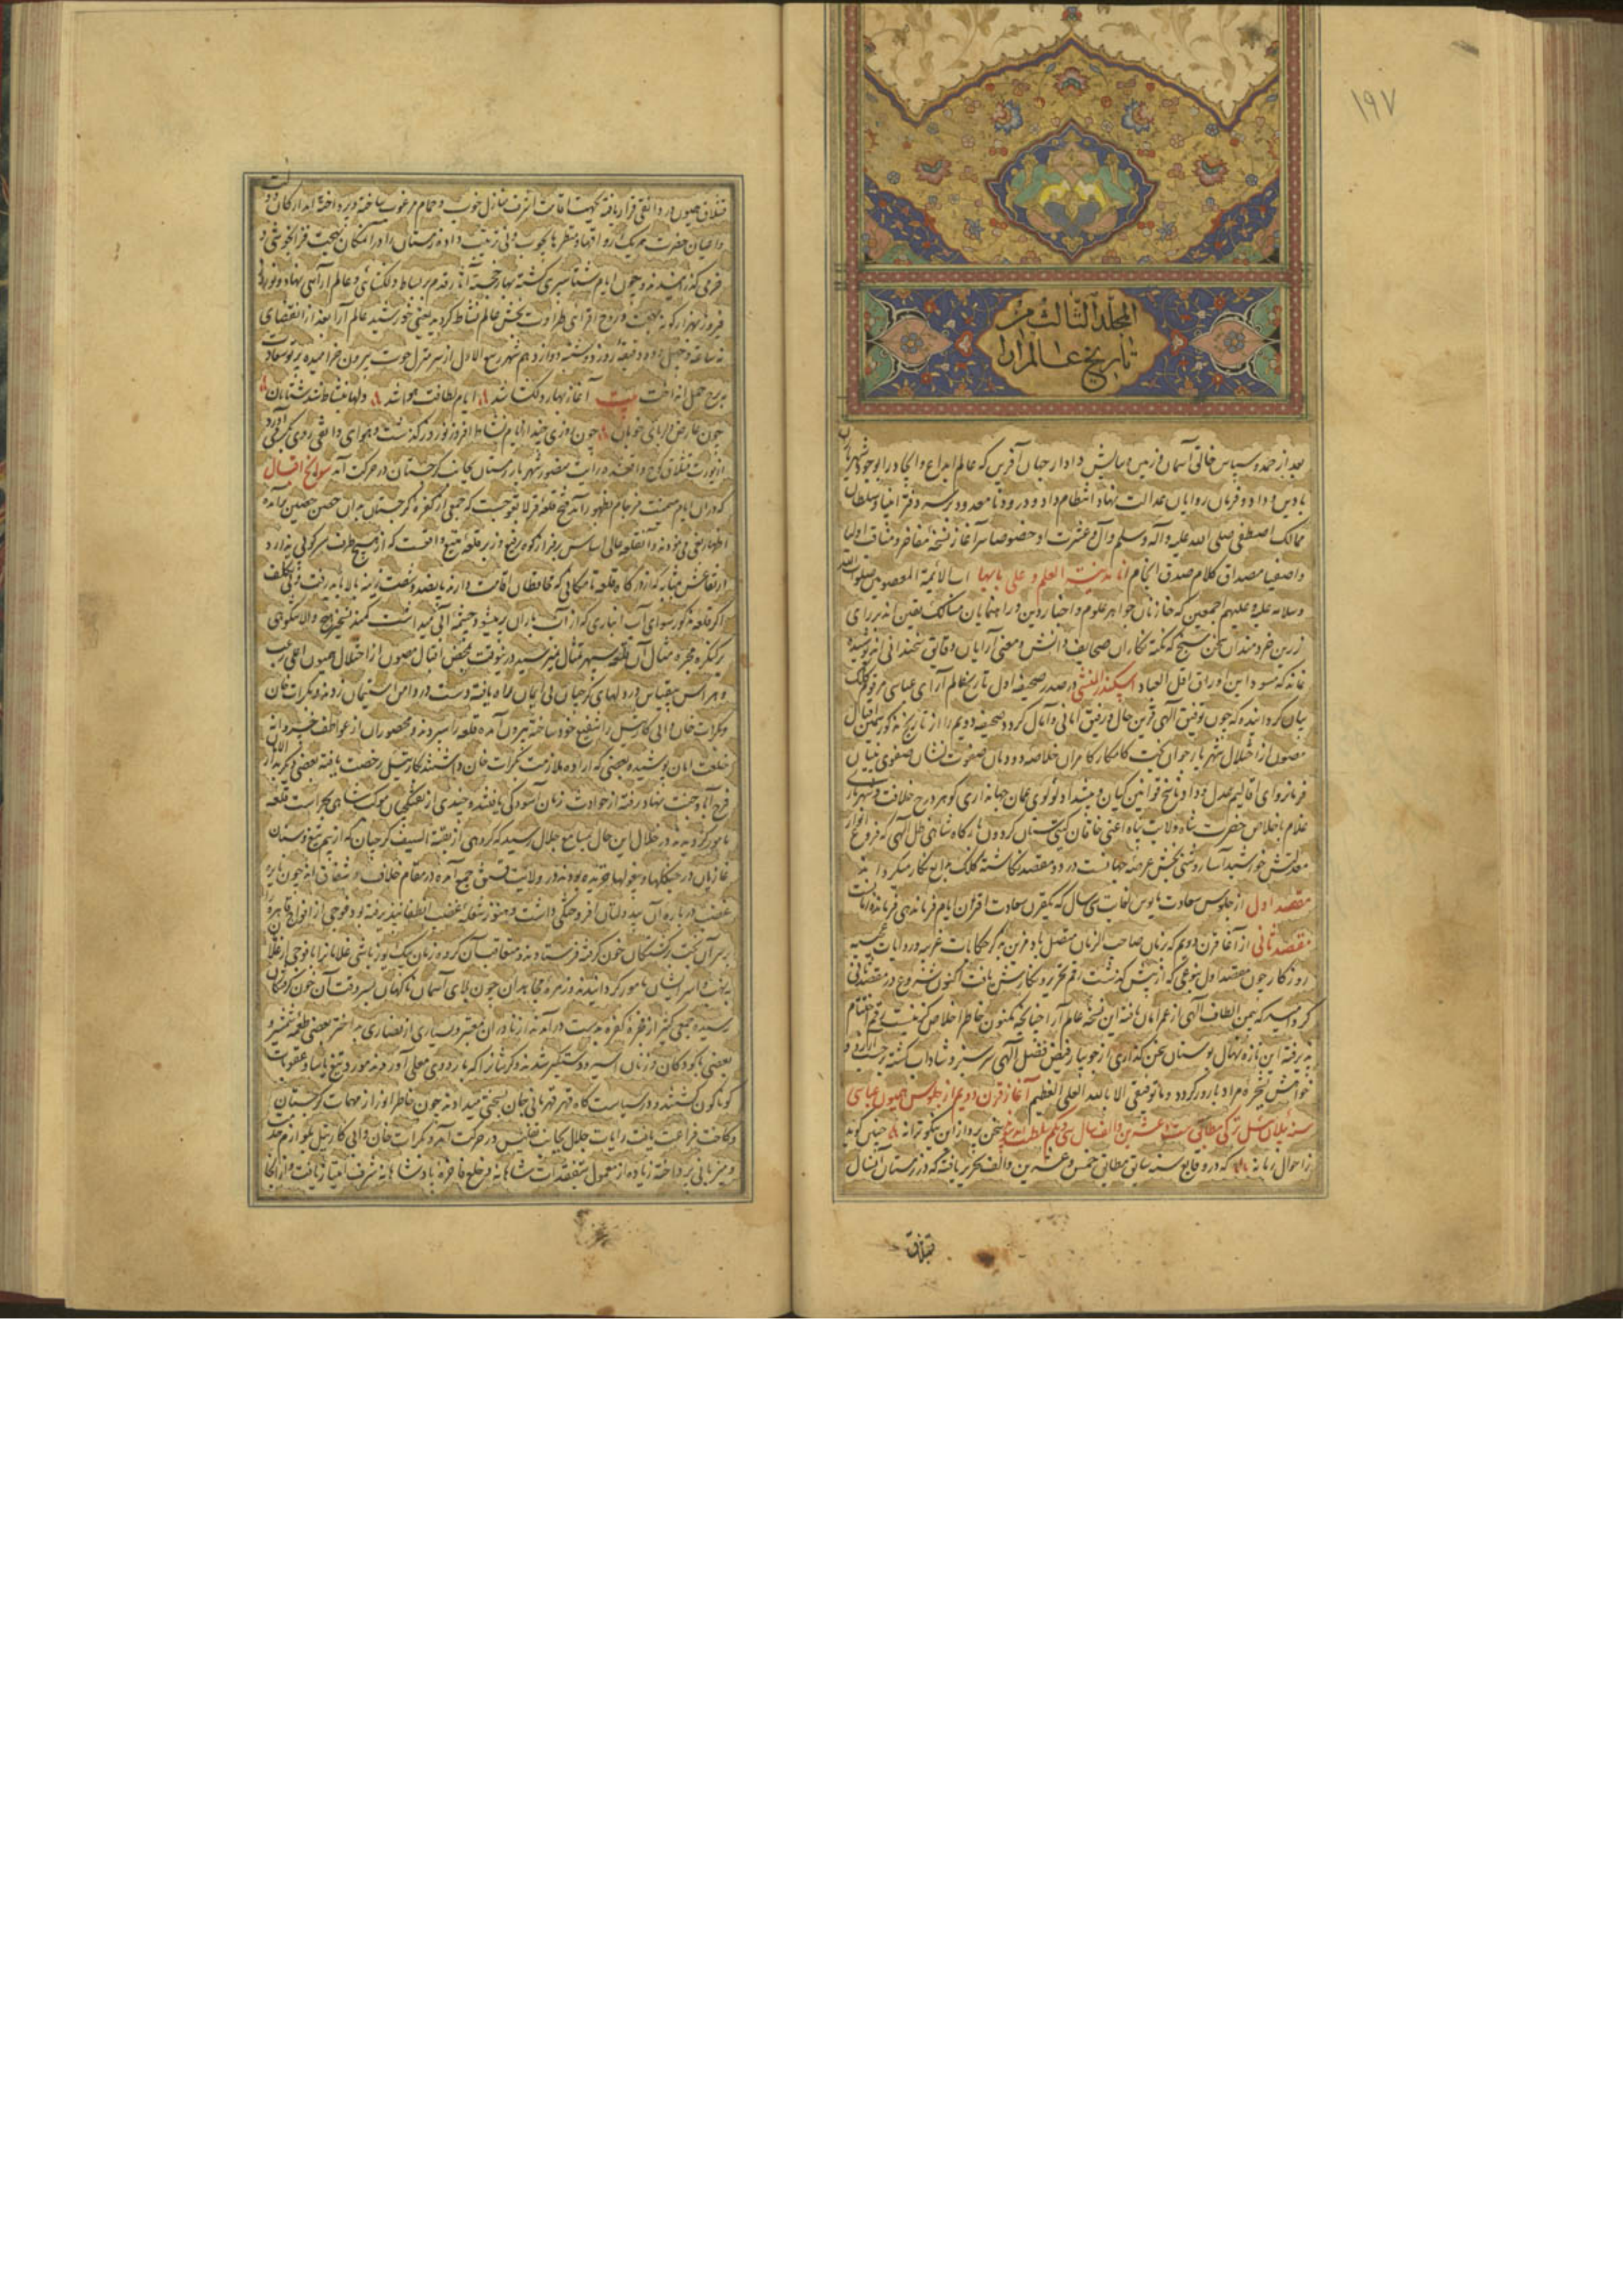 ۱۹۷
المجلد الثالث من
تاریخ عالم آرا
بعد از حمد و سپاس خالق آسمان و زمین و ستایش دادار جهان آفرین که عالم ابداع و ایجاد را بوجود شهریاران
با دین و داد و فرمان روایان عدالت نهاد انتظام داد و درود نامعدود بر سردفتر انبیا و سلطان
ممالک اصطفی صلی الله علیه و آله و سلم و آل و عترت او خصوصا سرآغاز نسخه مفاخر و مناقب اولیا
و اصفیا مصداق کلام صدق انجام انا مدینة العلم و علی بابها ابا الایمة المعصومین صلوات الله
و سلامه علیه و علیهم اجمعین که خازنان جواهر علوم و اخبار دین و راهنمایان مسالک یقین اند بر رای
زرین خردمندان سخن سنج که نکته نگاران صحایف دانش و معنی آرایان دقایق سخندانی اند پوشیده
نماند که مسود این اوراق اقل العباد اسکندر المنشی در صدر صحیفه اول تاریخ عالم آرای عباسی مرقوم کلک
بیان گردانیده که چون توفیق الهی قرین حال و رفیق امانی و آمال گردد صحیفه دویم را از تاریخ مذکور بیمن اقبال
مصون از اختلال شهریار جوان بخت کامکار کامران خلاصه دودمان صفوت نشان صفوی بنیان
فرمانروای اقالیم عدل و داد ناسخ قوانین کیان و پیشداد لولوی عمان جهانداری گوهر درج خلافت و شهریاری
غلام با خلاص حضرت شاه ولایت پناه اعنی خاقان گیتی ستان گردون بارگاه شاهی ظل الهی که فروغ انوار
معدلتش خورشید آسا روشنی بخش عرصه جهانست در دو مقصد نگاشته کلک بدایع نگار میگرداند
مقصد اول از جلوس سعادت مانوس لغایت سی سال که یکقرن سعادت اقران ایام فرماندهی فرمانروائیست
مقصد ثانی از آغاز قرن دویم که زمان صاحب الزمان متصل باد مزین بذکر حکایات غریبه و روایات عجیبه
روزگار چون مقصد اول بنوعی که از پیش گذشت رقم تحریر و نگارش یافت اکنون شروع در مقصد ثانی
کرد امید که بیمن الطاف الهی از عمر امان یافته این نسخه عالم آرا چنانچه مکنون خاطر اخلاص گزینست رقم اختتام
پذیرفته این تازه نهال بوستان سخن گذاری از جویبار فیض فضل الهی سرسبز و شاداب گشته بر حسب آرزو و
خواهش شجره مراد بارور گردد و ما توفیقی الا بالله العلی العظیم آغاز قرن دویم از جلوس همیون عباسی
سنه ئیلان ئیل ترکی مطابق ست و عشرین و الف سال سی و یکم سخن پرداز این نیکو ترانه چنین گوید
ز احوال زمانه که در وقایع سنه سابق مطابق خمس و عشرین و الف تحریر یافته که در زمستان آنسال
قشلاق
قشلاق همیون در دانقی قرار یافته بجهت اقامت اشرف منازل خوب و حمام مرغوب ساخته و پرداخته ارکان دولت
و اعیان حضرت هر یک رواقها و منظرها بچوب و نی ترتیب داده زمستان را در آنمکان بهجت فزا بخوشی و
خرمی گذرانیدند و چون ایام شتا سپری گشته بهار خجسته آثار قدم بر بساط دلگشائی و عالم آرائی نهاد و نوروز
فیروز بهزار گونه بهجت و روح افزائی طراوت بخش عالم نشاط گردید یعنی خورشید عالم آرا بعد از انقضای
نه ساعت و چهل و دو دقیقه روز دوشنبه دوازدهم شهر ربیع الاول از سر منزل حوت بیرون خرامیده پرتو سعادت
به برج حمل انداخت بیت آغاز بهار دلگشا شد ایام لطافت هوا شد دلها بنشاط شد شتابان
چون عارض دلربای خوبان چون روزی چند از ایام نشاط افروز نوروز گذشت و هوای دانقی روی بگرمی آورد
از یورت قشلاق کوچ واقعشده رایت منصور شهریار زمان بجانب گرجستان در حرکت آمد سوانح اقبال
که در آن ایام میمنت فرجام بظهور آمد فتح قلعه لوری حبت که جمعی از کفره گرجستان بدان حصن حصین برآمده
اظهار بغی می نمودند و آنقلعه عالی اساس بر فراز کوه رفیع و زبر قلعه منیع واقعست که از هیچ طرف سرکوبی ندارد
ارتفاعش بمثابه که از درگاه قلعه تا مکانی که محافظان اقامت دارند پانصد و شصت زینه بالا باید رفت فی تکلف
اگر قلعه مذکور سوای آب انباری که از آب باران پر میشود چشمه آبی میداشت کمند تسخیر هیچ والاشکوهی
بر کنگره مجره مثال آن قلعه سپهر تمثال نمیرسید درینوقت بمحض اقبال مصون از اختلال همیون اعلی رعب
و هراس بیقیاس در دلهای گرجیان بی ایمان راه یافته دست در دامن استیمان زدند و بکرات خان
و بکرات خان والی کارتیل را شفیع خود ساخته بیرون آمده قلعه را سپردند و محصوران از عواطف خسروانه
خلعت امان پوشیده بعضی که اراده ملازمت بکرات خان داشتند بکارتیل رخصت یافته بعضی دیگر بدار الامان
فرح آباد جنت بنیاد رفته از حوادث زمان آسودگی یافتند و چندی از تفنگچیان موکب شاهی بحراست قلعه
مامور گردیدند در خلال این حال بمسامع جلال رسید که گروهی از بقیة السیف گرجیان که از بیم تیغ و سنان
غازیان در جنگلها و بیغولها خزیده بودند در ولایت قسق جمع آمده در مقام خلاف و شقاق اند چون نایره
غضب در باره آن بیدولتان افروختگی داشت و هنوز شعله غضب انطفا نپذیرفته بود فوجی از افواج قاهره را
بر سر آن بخت برگشتگان خون گرفته فرستادند و متعاقب آن گروه زمان بیک یوزباشی غلامان را با فوجی از غلامان
به نهب و اسر ایشان مامور گردانیدند و زمره مجاهدان چون بلای آسمان ناگهان بسر وقت آن خون گرفتگان
رسیده جمعی کثیر از فجره کفره بدست درآمدند از ناوران معتبر و بسیاری از نصاری بداختر بعضی طعمه شمشیر و
بعضی با کودکان و زنان اسیر و دستگیر شدند و کرتانرا که باردوی معلی آوردند مورد تیغ یاسا و عقوبات
گوناگون گشتند و در سیاست گاه قهر قهرمانی جان بسختی میدادند چون خاطر انور از مهمات گرجستان
و کاخت فراغت یافت رایات جلال بجانب تفلیس در حرکت آمد و بکرات خان والی کارتیل بلوازم خدمت
و میزبانی پرداخته زیاده از معمول بتفقدات شاهانه و خلع فاخره پادشاهانه شرف امتیاز یافت و از آنجا